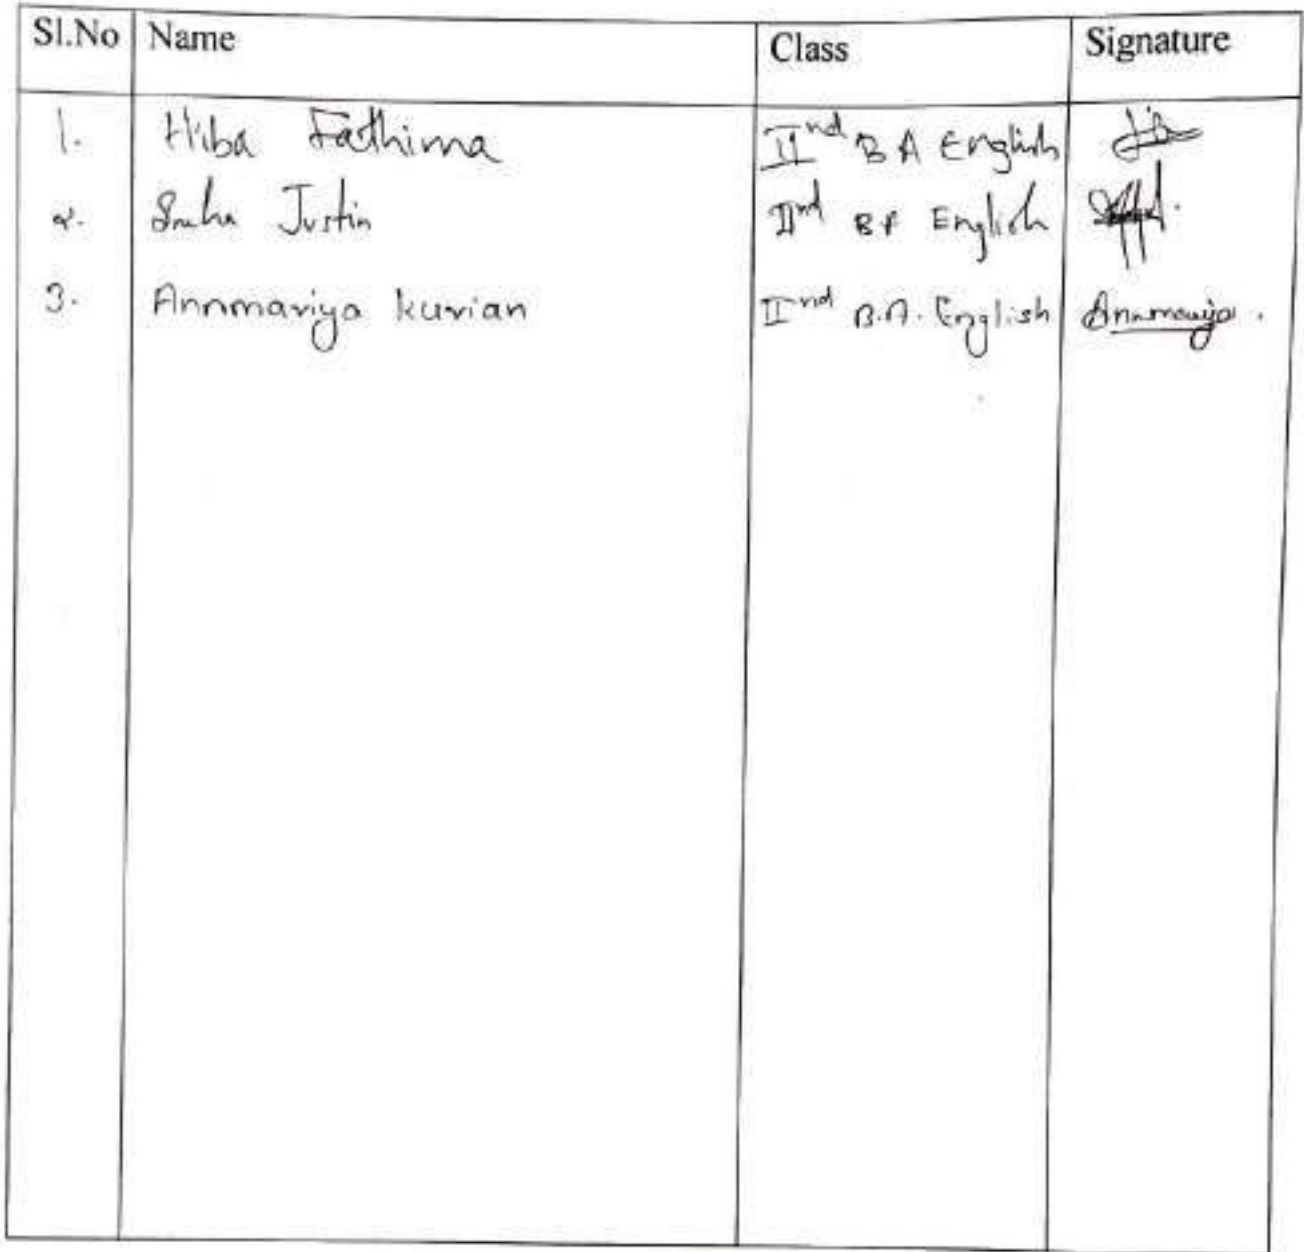 Sl.No Name Class Signature
1. Hiba Fathima IInd BA English
2. Justin IInd BA English
3. Annmariya kurian IInd B.A. English Annmariya.